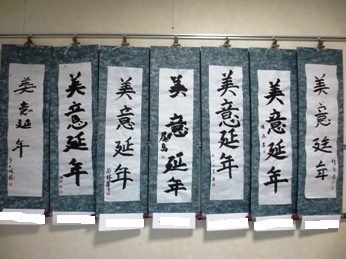 美意延年
美意延年
美意延年
美意延年
美意延年
美意延年
美意延年